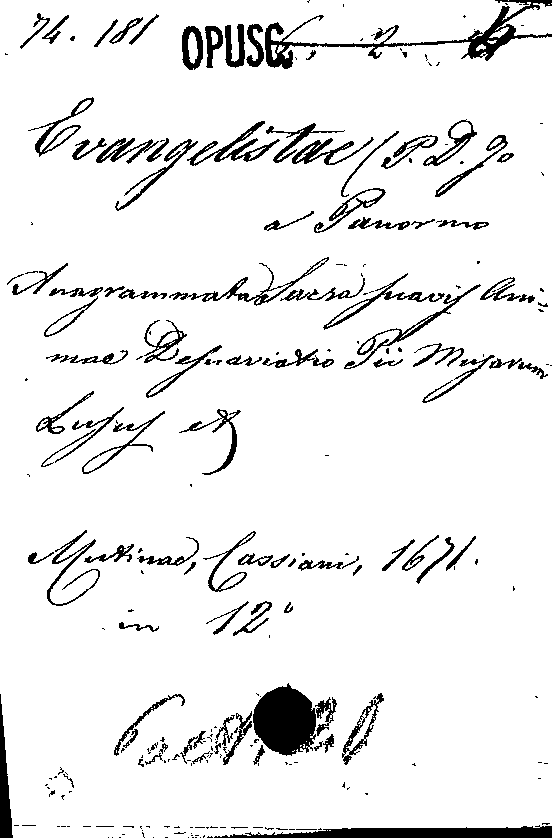 74. 181 OPUSC. 2.
Evangelistae (P. D. Jo
a Panormo
Anagrammata Sacra suavis Ani-
mae Desuaviatio Pii Musarum
Lusus et
Mutinae, Cassiani, 1671.
in 12°